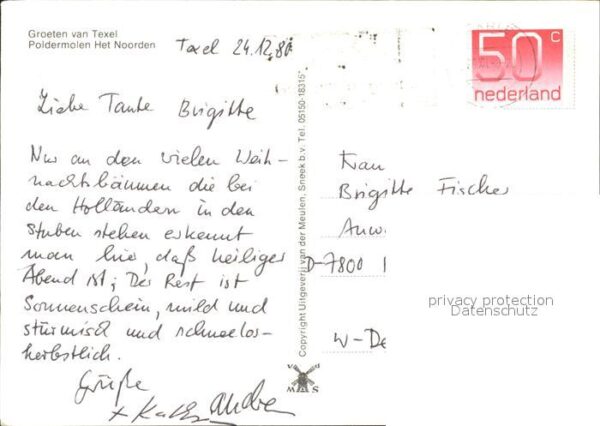 Groeten van Texel
Poldermolen Het Noorden
Texel 24.12.80
50 c
nederland
Liebe Tante Brigitte
Nur an den vielen Weih-
nachtsbäumen die bei
den Holländern in den
Stuben stehen erkennt
man hier, daß heiliger
Abend ist; Der Rest ist
Sonnenschein, mild und
stürmisch und schneelos-
herbstlich.
Grüße
Copyright Uitgeverij van der Meulen, Sneek b.v. Tel. 05150-18315*
MAS
Frau
Brigitte Fischer
Anw.
D-7800
W-De
privacy protection
Datenschutz